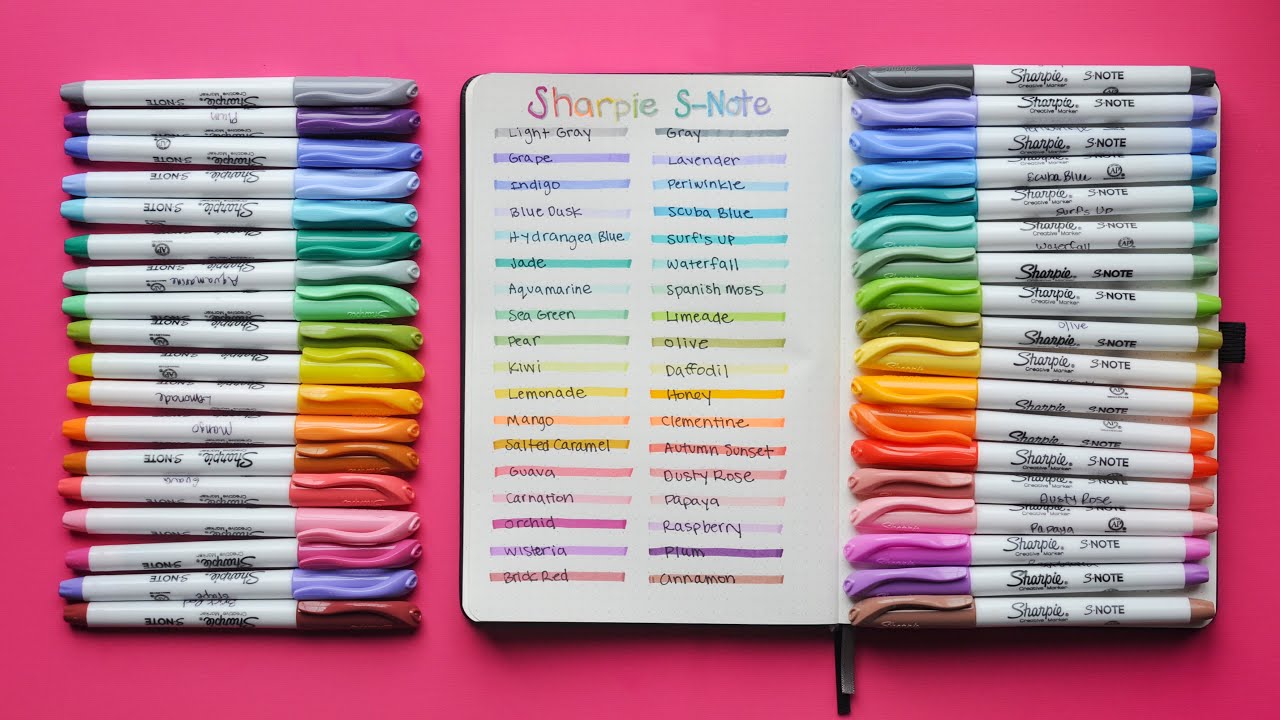 Sharpie S-Note
Light Gray
Grape
Indigo
Blue Dusk
Hydrangea Blue
Jade
Aquamarine
Sea Green
Pear
Kiwi
Lemonade
Mango
Salted Caramel
Guava
Carnation
Orchid
Wisteria
Brick Red
Gray
Lavender
Periwinkle
Scuba Blue
Surf's Up
Waterfall
Spanish Moss
Limeade
Olive
Daffodil
Honey
Clementine
Autumn Sunset
Dusty Rose
Papaya
Raspberry
Plum
Cinnamon
Sharpie® S-NOTE
Creative Marker
Plum
Sharpie
S-NOTE Sharpie
S-NOTE Sharpie
Aquamarine
S-NOTE Sharpie
Lemonade
Mango
S-NOTE Sharpie
Guava
Sharpie
Creative Marker
Sharpie
Creative Marker
S-NOTE Sharpie
Brick Red
S-NOTE Sharpie
Sharpie® S-NOTE
Creative Marker
Sharpie® S-NOTE
Creative Marker
Scuba Blue
Sharpie® S-NOTE
Creative Marker
Surf's Up
Sharpie® S-NOTE
Creative Marker
Waterfall
Sharpie® S-NOTE
Sharpie® S-NOTE
Creative Marker
Olive
S-NOTE
Sharpie® S-NOTE
Creative Marker
Sharpie S-NOTE
Sharpie S-NOTE
Sharpie® S-NOTE
Creative Marker
Dusty Rose
Sharpie® S-NOTE
Creative Marker
Papaya
Sharpie® S-NOTE
Creative Marker
Sharpie® S-NOTE
Creative Marker
Sharpie® S-NOTE
Creative Marker